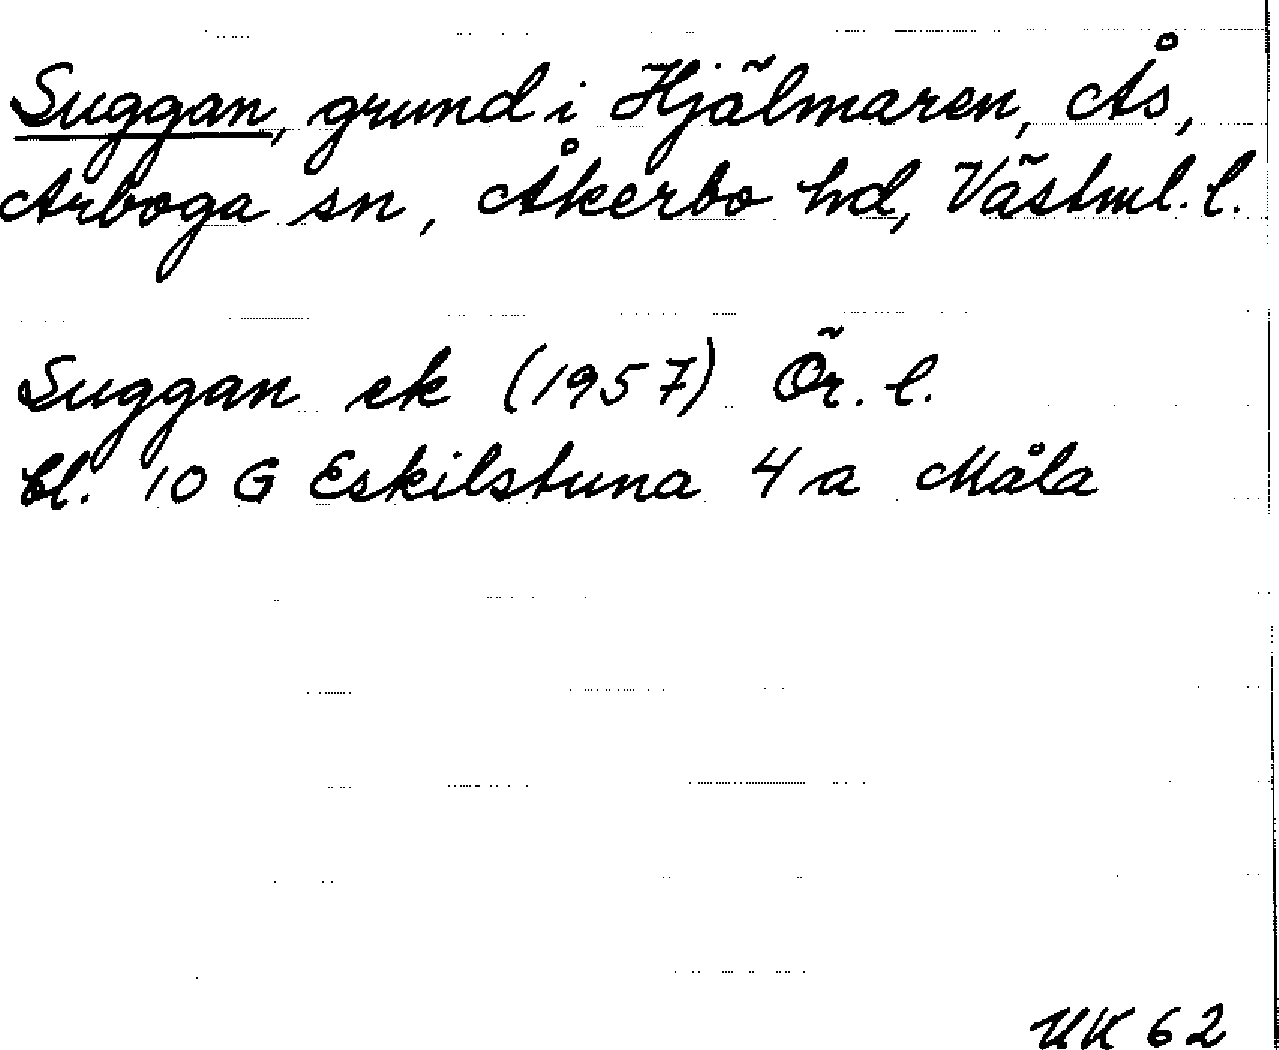 Suggan, grund i Hjälmaren, Ås,
Arboga sn, Åkerbo hd, Västml. l.
Suggan ek (1957) Ör. l.
bl. 10 G Eskilstuna 4 a Måla
UK 62